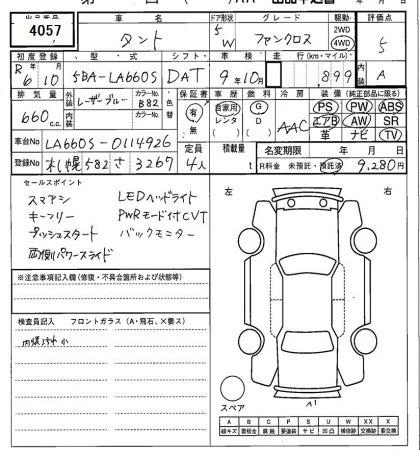 出品番号 車名 ドア形状 グレード 駆動 評価点
4057 タント 5 W ファンクロス 2WD 4WD 5
初度登録 型式 シフト 車検 走行(km・マイル) 内装
R6 10 5BA-LA660S DAT 9年10月 899 A
排気量 外装 レーザーブルー カラーNo. B82 色替 保証書 車歴 燃料 冷房 装備(純正部品に限る)
660c.c. 内装 カラーNo. 有 無 自家用 レンタ G D AAC PS PW ABS
エアB AW SR
革 ナビ TV
車台No LA660S-0114926 定員 積載量 名変期限 年 月 日
登録No 札幌582さ3267 4人 t R料金 未預託・預託済 9,280円
セールスポイント
スマアシ LEDヘッドライト
キーフリー PWRモード付CVT
プッシュスタート バックモニター
両側パワースライド
左 右
※注意事項記入欄(修復・不具合箇所および状態等)
検査員記入 フロントガラス(A・飛石、X要ス)
内装汚れ小
スペア
A1
A B C P S U W X XX
線キズ 要板金 腐蝕 要塗装 サビ 凹凸 補修跡 交換跡 要交換